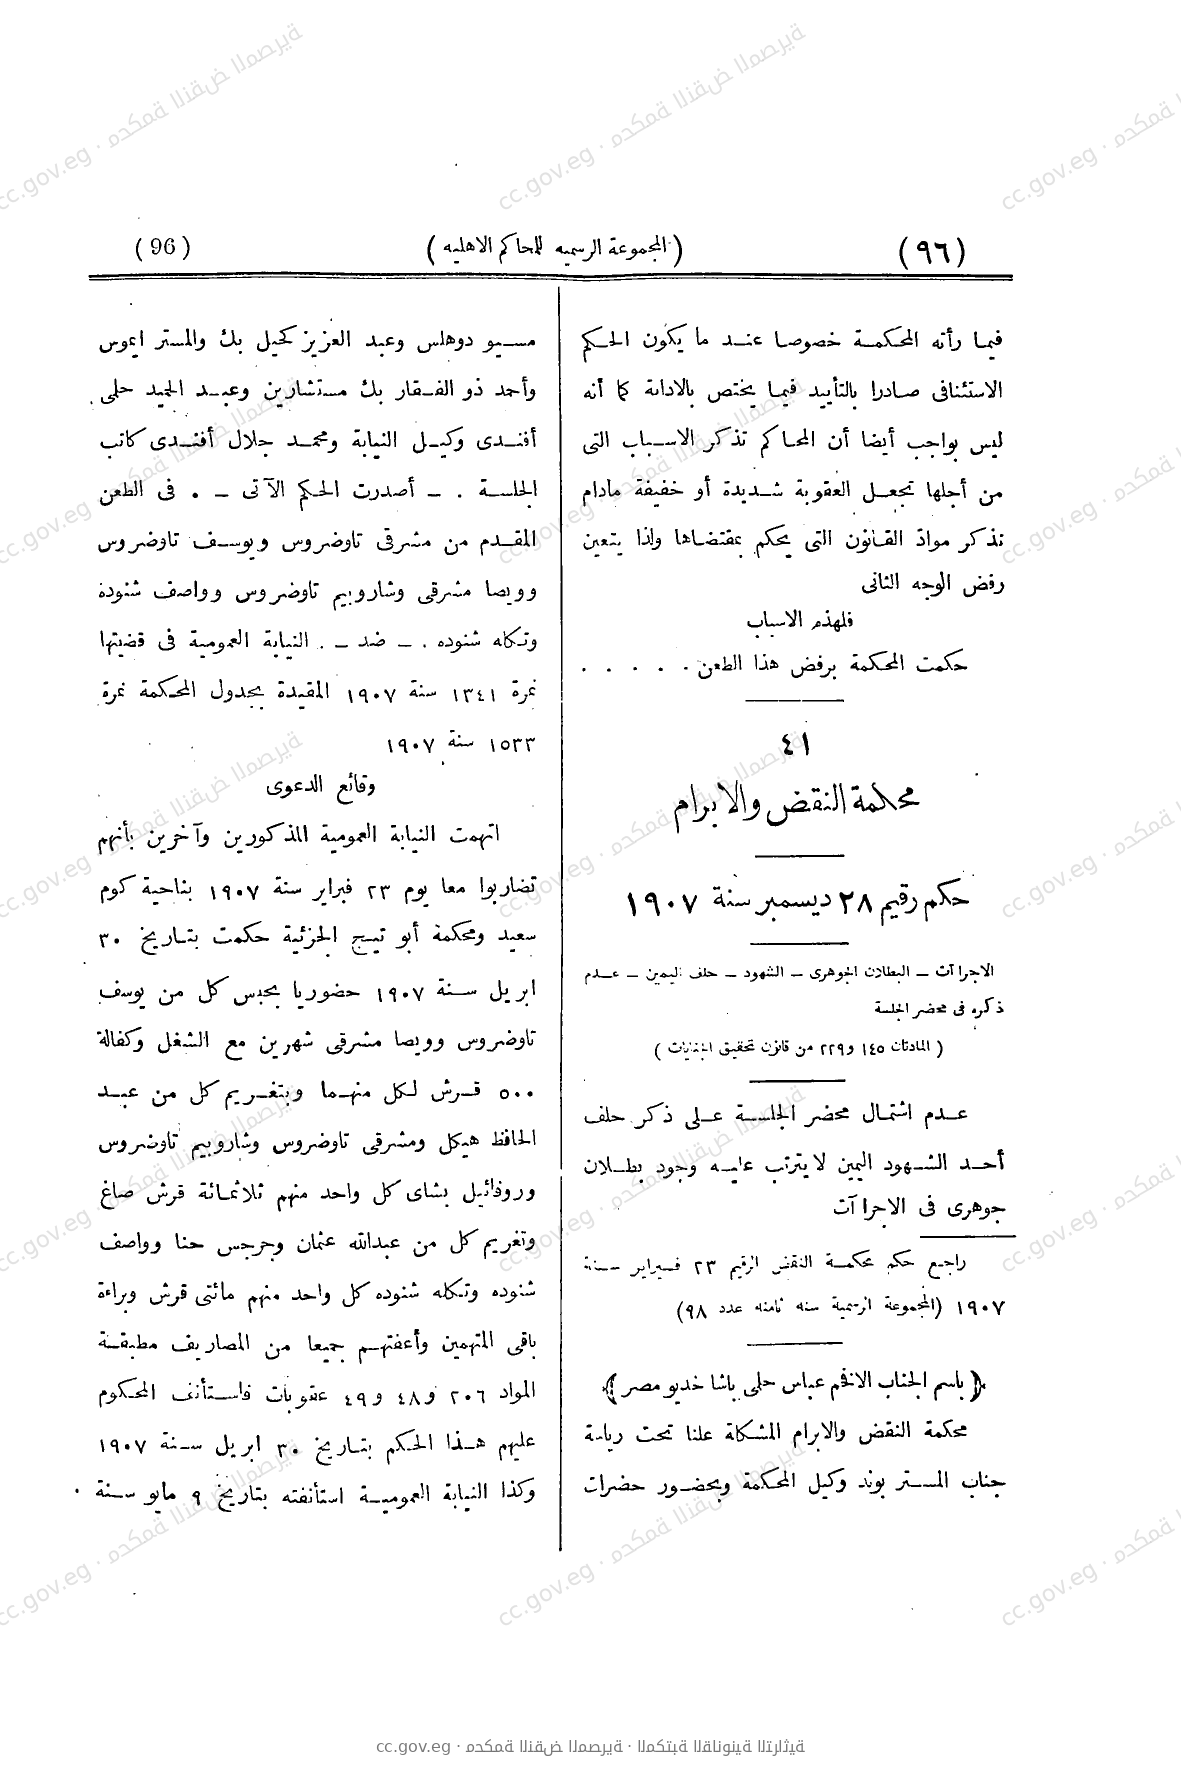 (٩٦)
(المجموعة الرسميه للمحاكم الاهليه)
(96)
فيما رأته المحكمة خصوصا عند ما يكون الحكم
الاستئنافى صادرا بالتأييد فيما يختص بالادانة كما أنه
ليس بواجب أيضا أن المحاكم تذكر الاسباب التى
من أجلها تجعل العقوبة شديدة أو خفيفة مادام
تذكر مواد القانون التى يحكم بمقتضاها ولذا يتعين
رفض الوجه الثانى
فلهذه الاسباب
حكمت المحكمة برفض هذا الطعن . . . . .
٤١
محكمة النقض والابرام
حكم رقيم ٢٨ ديسمبر سنة ١٩٠٧
الاجراآت – البطلان الجوهرى – الشهود – حلف اليمين – عدم
ذكره فى محضر الجلسة
( المادتان ١٤٥ و٢٢٩ من قانون تحقيق الجنايات )
عدم اشتمال محضر الجلسة على ذكر حلف
أحد الشهود اليمين لا يترتب عليه وجود بطلان
جوهرى فى الاجراآت
راجع حكم محكمة النقض الرقيم ٢٣ فبراير سنة
١٩٠٧ (المجموعة الرسمية سنه ثامنه عدد ٩٨)
﴿ باسم الجناب الافخم عباس حلمى باشا خديو مصر ﴾
محكمة النقض والابرام المشكلة علنا تحت رياسة
جناب المستر بوند وكيل المحكمة وبحضور حضرات
مسيو دوهلس وعبد العزيز كحيل بك والمستر ايموس
وأحمد ذو الفقار بك مستشارين وعبد الحميد حلمى
أفندى وكيل النيابة ومحمد جلال أفندى كاتب
الجلسة . – أصدرت الحكم الآتى – . فى الطعن
المقدم من مشرقى تاوضروس ويوسف تاوضروس
وويصا مشرقى وشاروبيم تاوضروس وواصف شنوده
وتكله شنوده . – ضد – . النيابة العمومية فى قضيتها
نمرة ١٣٤١ سنة ١٩٠٧ المقيدة بجدول المحكمة نمرة
١٥٣٣ سنة ١٩٠٧
وقائع الدعوى
اتهمت النيابة العمومية المذكورين وآخرين بأنهم
تضاربوا معا يوم ٢٣ فبراير سنة ١٩٠٧ بناحية كوم
سعيد ومحكمة أبو تيج الجزئية حكمت بتاريخ ٣٠
ابريل سنة ١٩٠٧ حضوريا بحبس كل من يوسف
تاوضروس وويصا مشرقى شهرين مع الشغل وكفالة
٥٠٠ قرش لكل منهما وبتغريم كل من عبد
الحافظ هيكل ومشرقى تاوضروس وشاروبيم تاوضروس
وروفائيل بشاى كل واحد منهم ثلاثمائة قرش صاغ
وتغريم كل من عبدالله عثمان وجرجس حنا وواصف
شنوده وتكله شنوده كل واحد منهم مائتى قرش وبراءة
باقى المتهمين وأعفتهم جميعا من المصاريف مطبقة
المواد ٢٠٦ و٤٨ و٤٩ عقوبات فاستأنف المحكوم
عليهم هذا الحكم بتاريخ ٣٠ ابريل سنة ١٩٠٧
وكذا النيابة العمومية استأنفته بتاريخ ٩ مايو سنة
cc.gov.eg · محكمة النقض المصرية · المكتبة القانونية التراثية